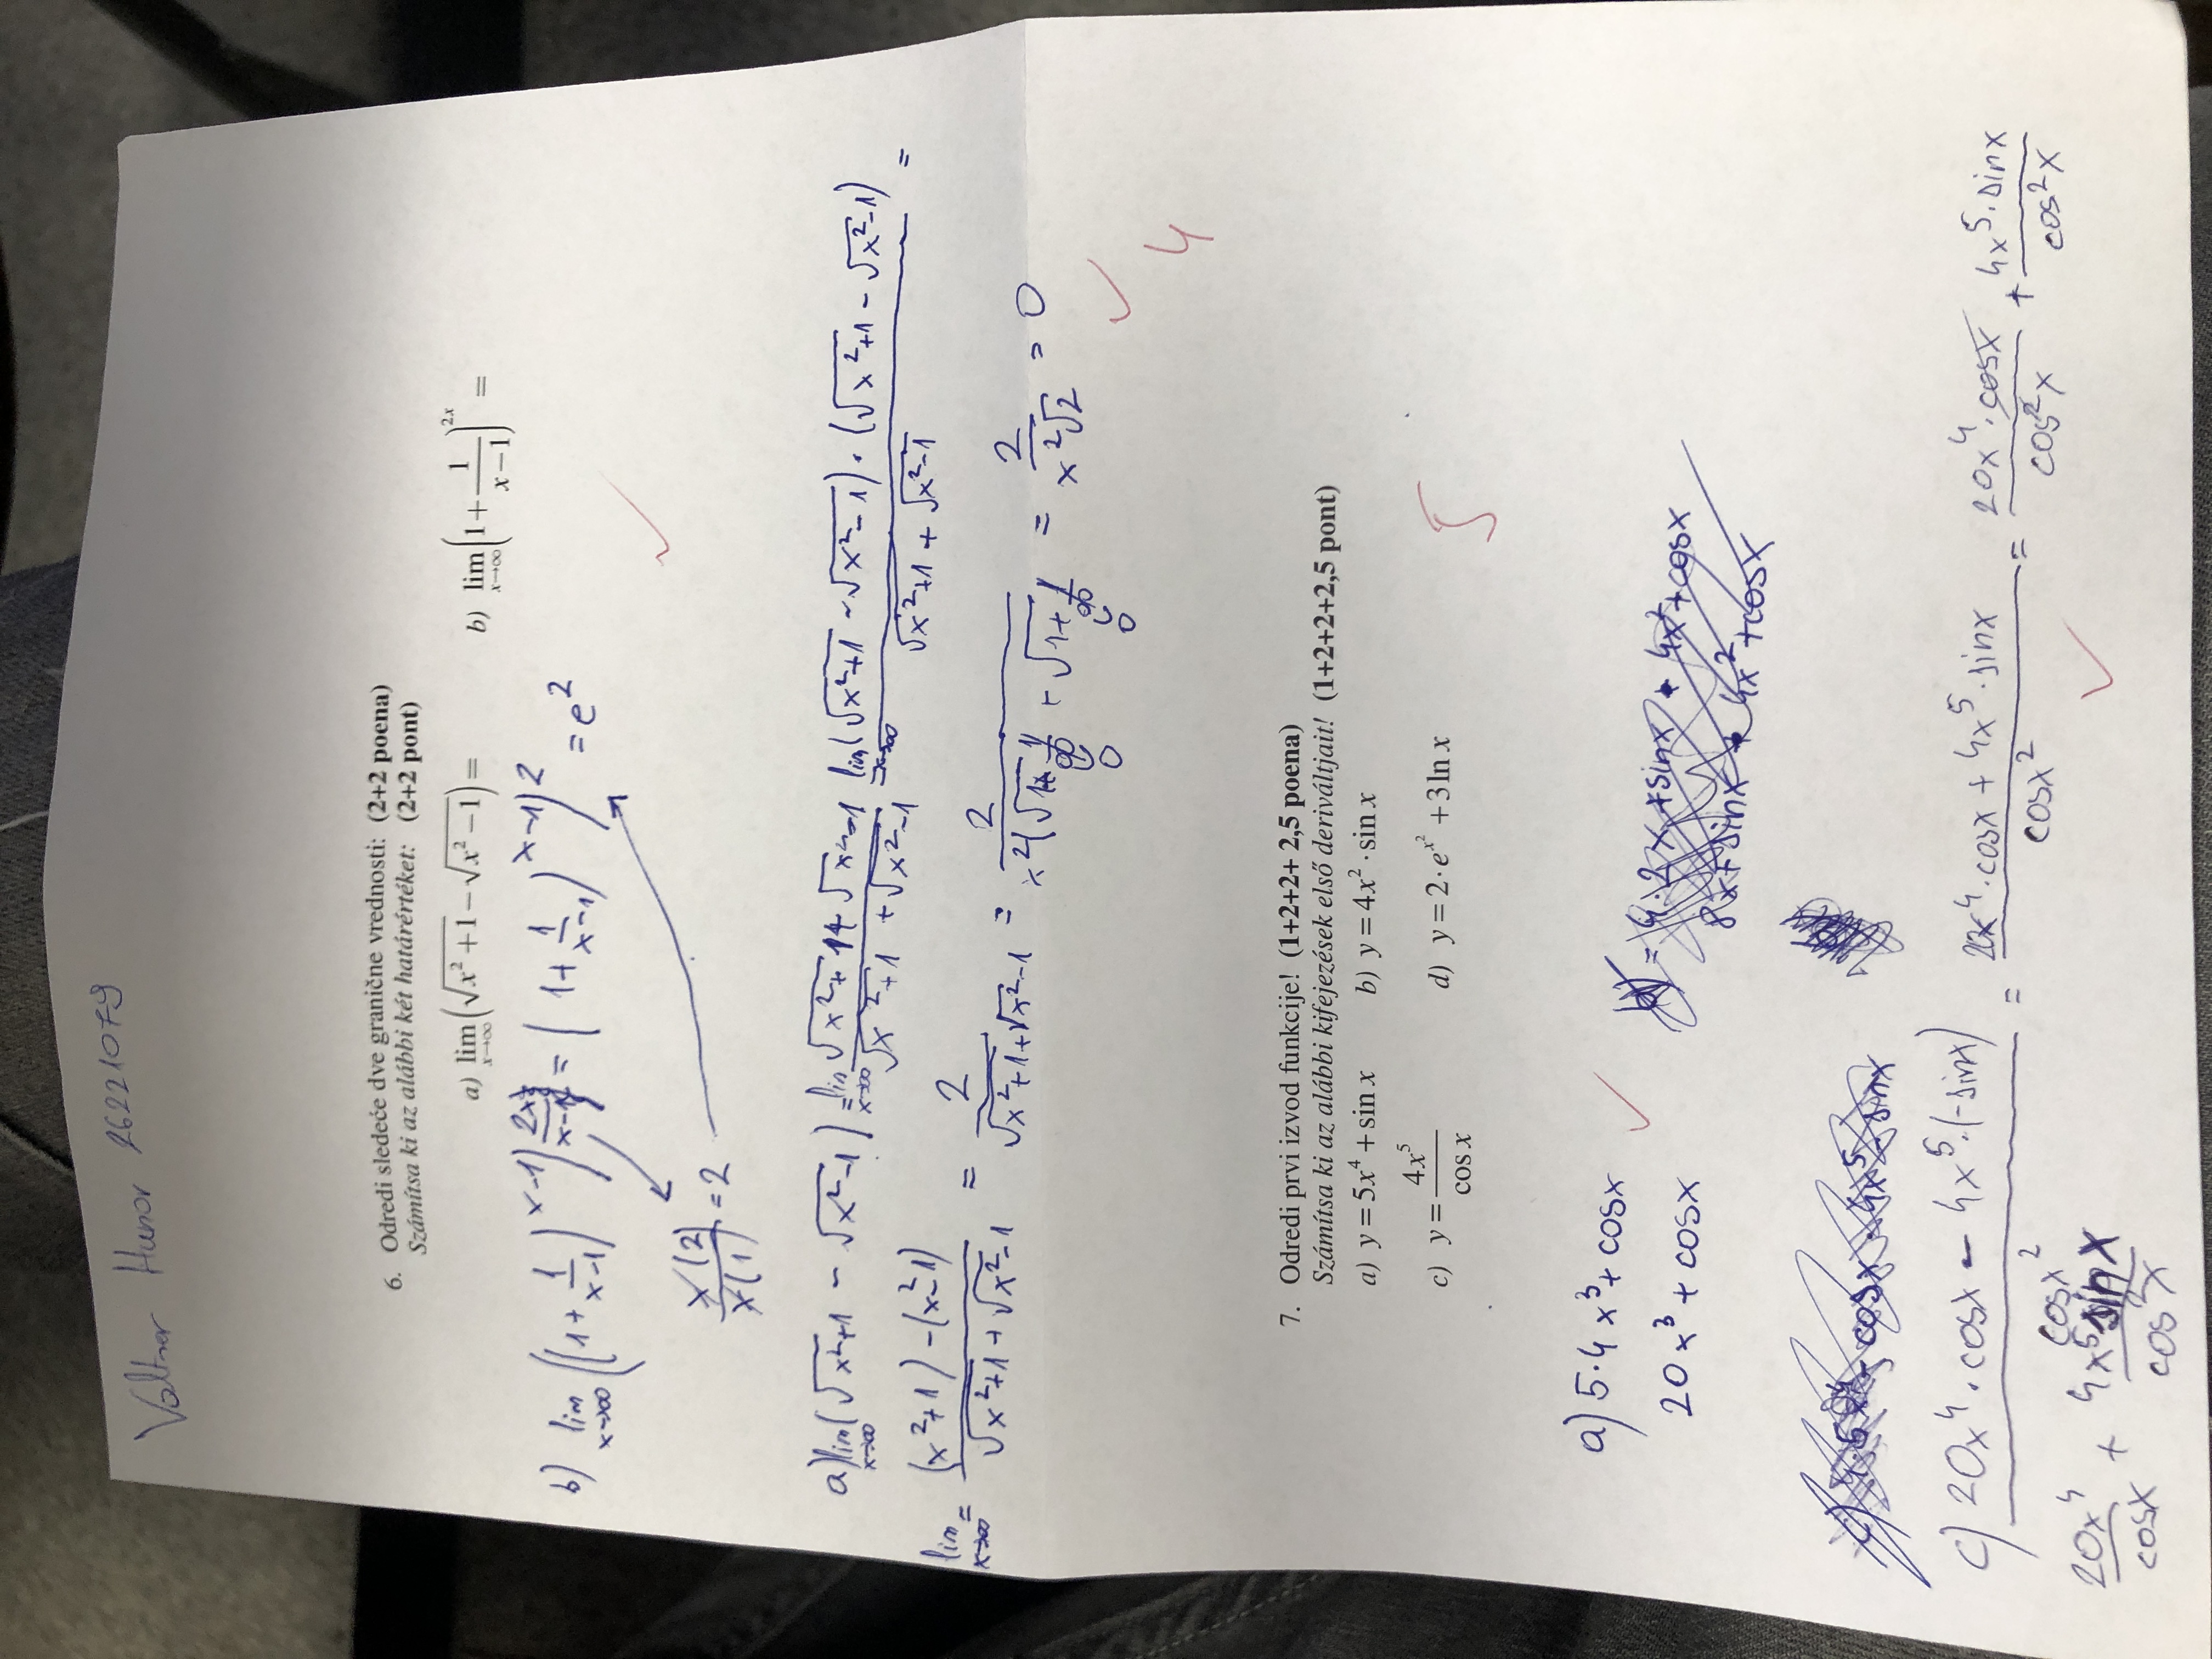 Valtner Hunor 26221079
6. Odredi sledeće dve granične vrednosti: (2+2 poena)
Számítsa ki az alábbi két határértéket: (2+2 pont)
a) lim x→∞ (√(x²+1) − √(x²−1)) = b) lim x→∞ (1 + 1/(x−1))^2x =
b) lim x→∞ ((1 + 1/(x−1))^x−1)^2x/(x−1) = (1 + 1/(x−1))^x−1)^2 = e²
x(2)/x(1) = 2
a) lim x→∞ (√x²+1 − √x²−1) = lim x→∞ √x²+1+√x²−1 / √x²+1 + √x²−1 lim x→∞ (√x²+1 − √x²−1) · (√x²+1 − √x²−1) / √x²+1 + √x²−1 =
lim x→∞ = (x²+1) − (x²−1) / √x²+1 + √x²−1 = 2 / √x²+1+√x²−1 = 2 / x²(√1+1/∞ + √1+1/∞ = 2 / x²√2 = 0
0 0
4
7. Odredi prvi izvod funkcije! (1+2+2+ 2,5 poena)
Számítsa ki az alábbi kifejezések első deriváltjait! (1+2+2+2,5 pont)
a) y = 5x⁴ + sin x b) y = 4x² · sin x
c) y = 4x⁵/cos x d) y = 2·e^x² + 3 ln x
5
a) 5·4x³ + cosx
20x³ + cosx
b) = 4·2x + sinx · 4x² + cosx
8x + sinx · 4x² + cosx
c) 20x⁴ · cosx − 4x⁵·(−sinx) / cosx² = 20x⁴·cosx + 4x⁵·sinx / cosx² = 20x⁴·cosx / cos²x + 4x⁵·sinx / cos²x
20x⁴/cosx + 4x⁵sinx/cos²x